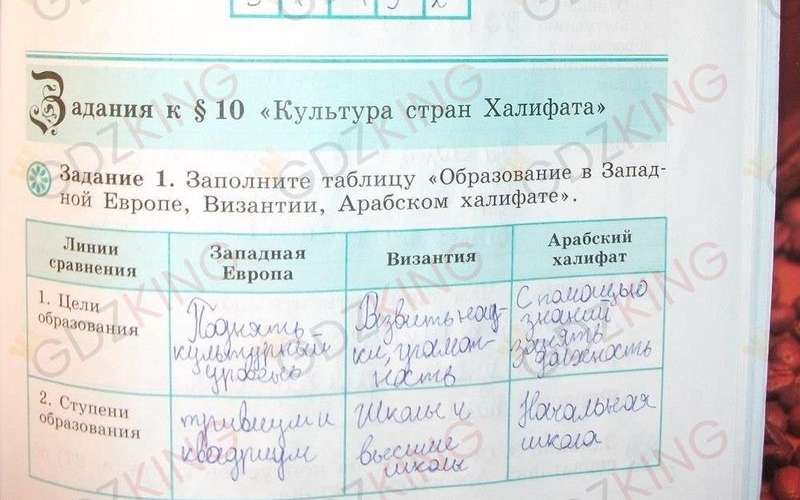 Задания к § 10 «Культура стран Халифата»
Задание 1. Заполните таблицу «Образование в Запад-
ной Европе, Византии, Арабском халифате».
Линии
сравнения
Западная
Европа
Византия
Арабский
халифат
1. Цели
образования
Поднять
культурный
уровень
Развить нау-
ки, грамот-
ность
С помощью
знаний
занять
должность
2. Ступени
образования
тривиум и
квадриум
Школы и
высшие
школы
Начальная
школа
GDZKING